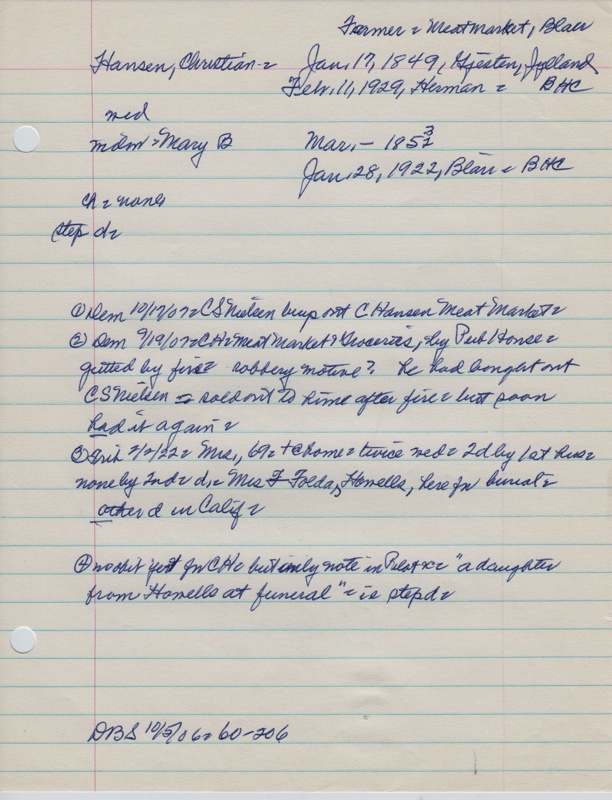 Farmer = Meat market, Blair
Hansen, Christian = Jan. 17, 1849, Hjesten, Jylland
Feb. 11, 1929, Herman = BHC
wed
mdm = Mary B Mar. – 1853
Jan. 28, 1922, Blair = BHC
ch = none
step d =
① Dem 10/17/07 = CS Nielsen buys out C Hansen Meat Market =
② Dem 9/19/07 = CH = Meat Market & Groceries, by Pub House =
gutted by fire = robbery motive? he had bought out
CS Nielsen = sold out to him after fire = but soon
had it again =
③ 2/2/22 = Mrs., 69 = + @ home = twice wed = 2 d by 1st hus =
none by 2nd = d, = Mrs F Folda, Howells, here for burial =
other d in Calif =
④ no obit yet for CH = but only note in Pilot = "a daughter
from Howells at funeral" = is stepd =
DBS 10/5/06 = 60-206